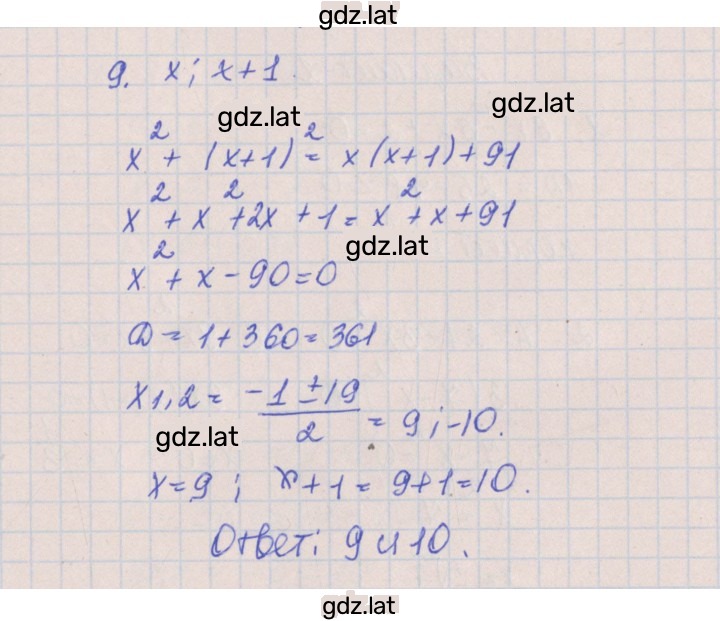 gdz.lat
9. x; x+1.
gdz.lat
gdz.lat
x² + (x+1)² = x(x+1)+91
x² + x² + 2x + 1 = x² + x + 91
gdz.lat
x² + x - 90 = 0
D = 1 + 360 = 361
x1,2 = (-1 ± 19)/2 = 9; -10.
gdz.lat
x = 9; x+1 = 9+1 = 10.
Ответ: 9 и 10.
gdz.lat